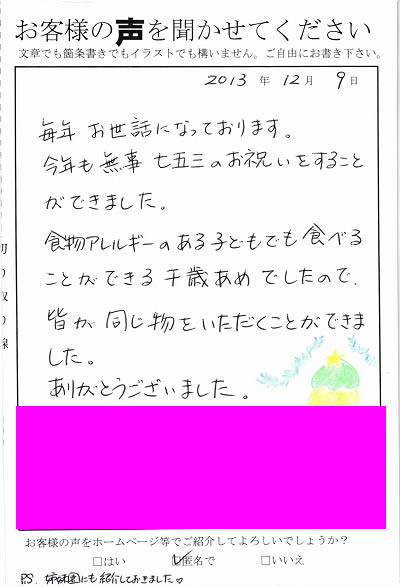 お客様の声を聞かせてください
文章でも箇条書きでもイラストでも構いません。ご自由にお書き下さい。
2013 年 12月 9日
毎年 お世話になっております。
今年も 無事 七五三のお祝いをすること
ができました。
食物アレルギーのある子どもでも食べる
ことができる 千歳あめ でしたので、
皆が 同じ物をいただくことができま
した。
ありがとうございました。
切り取り線
お客様の声をホームページ等でご紹介してよろしいでしょうか?
□はい ☑匿名で □いいえ
P.S. 姉妹園にも紹介しておきました♡